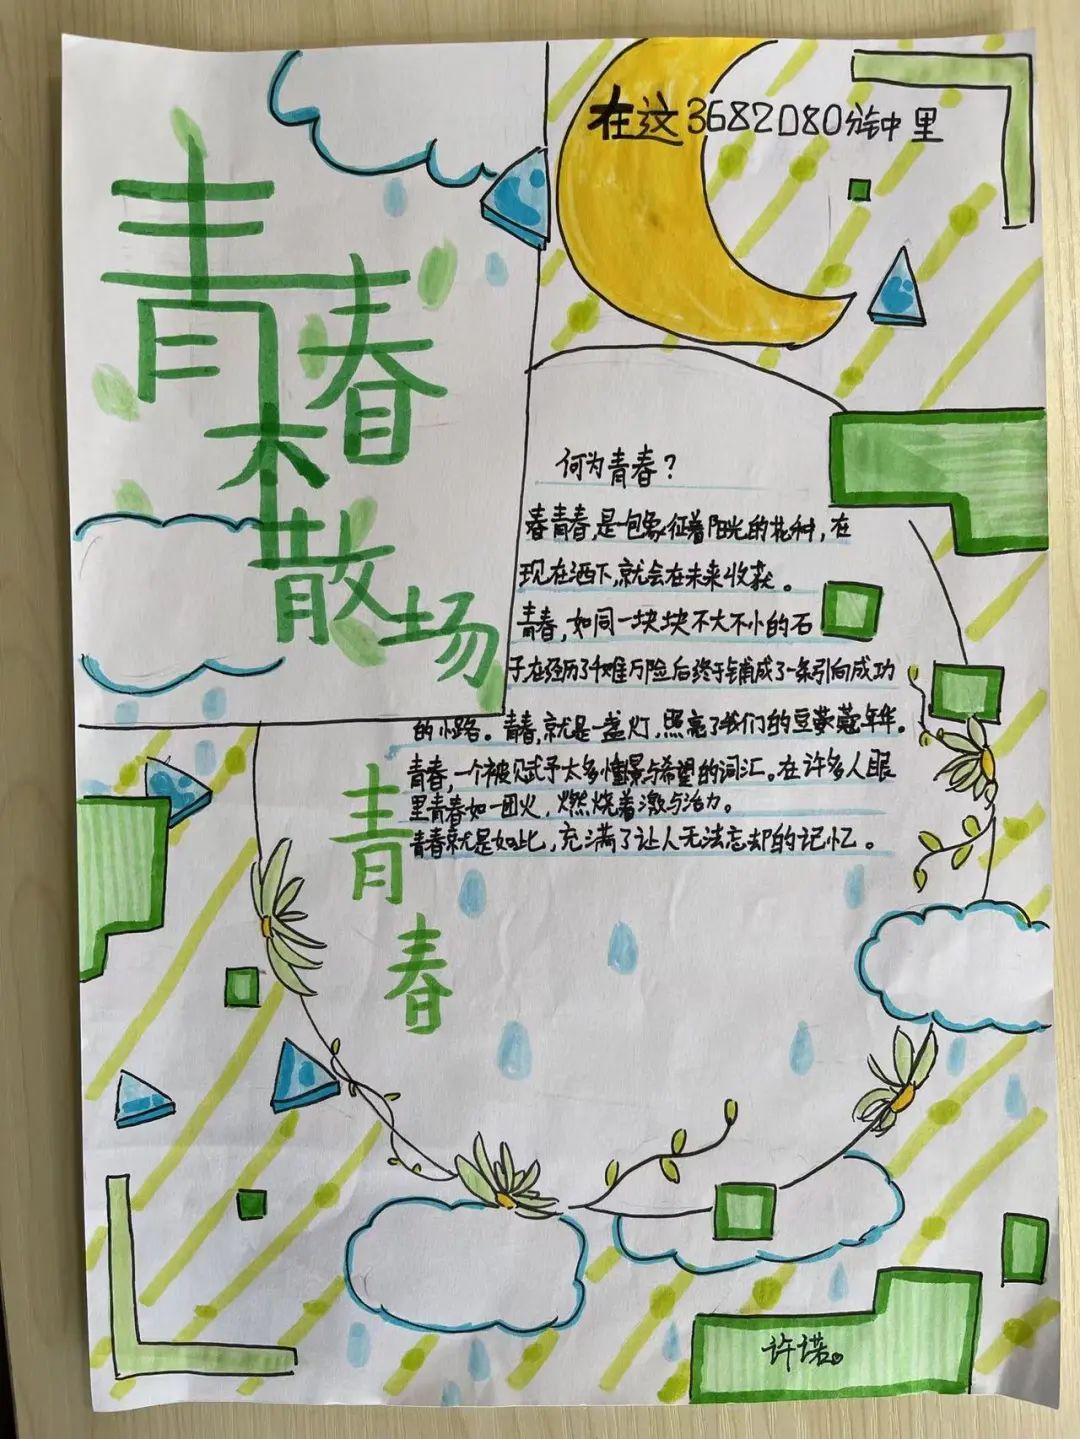 青春不散场
在这3682080分钟里
何为青春？
春青春，是一包象征着阳光的花种，在
现在洒下，就会在未来收获。
青春，如同一块块不大不小的石
子，在经历了千难万险后终于铺成了一条引向成功
的小路。青春，就是一盏灯，照亮了我们的豆蔻年华。
青春，一个被赋予太多憧憬与希望的词汇。在许多人眼
里青春如一团火，燃烧着激与活力。
青春就是如此，充满了让人无法忘却的记忆。
青春
许诺。